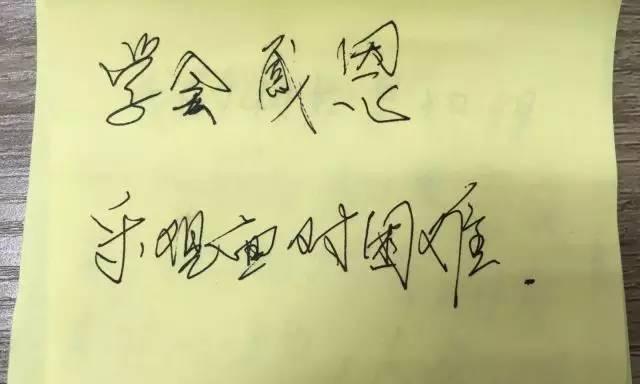 学会感恩
乐观面对困难.